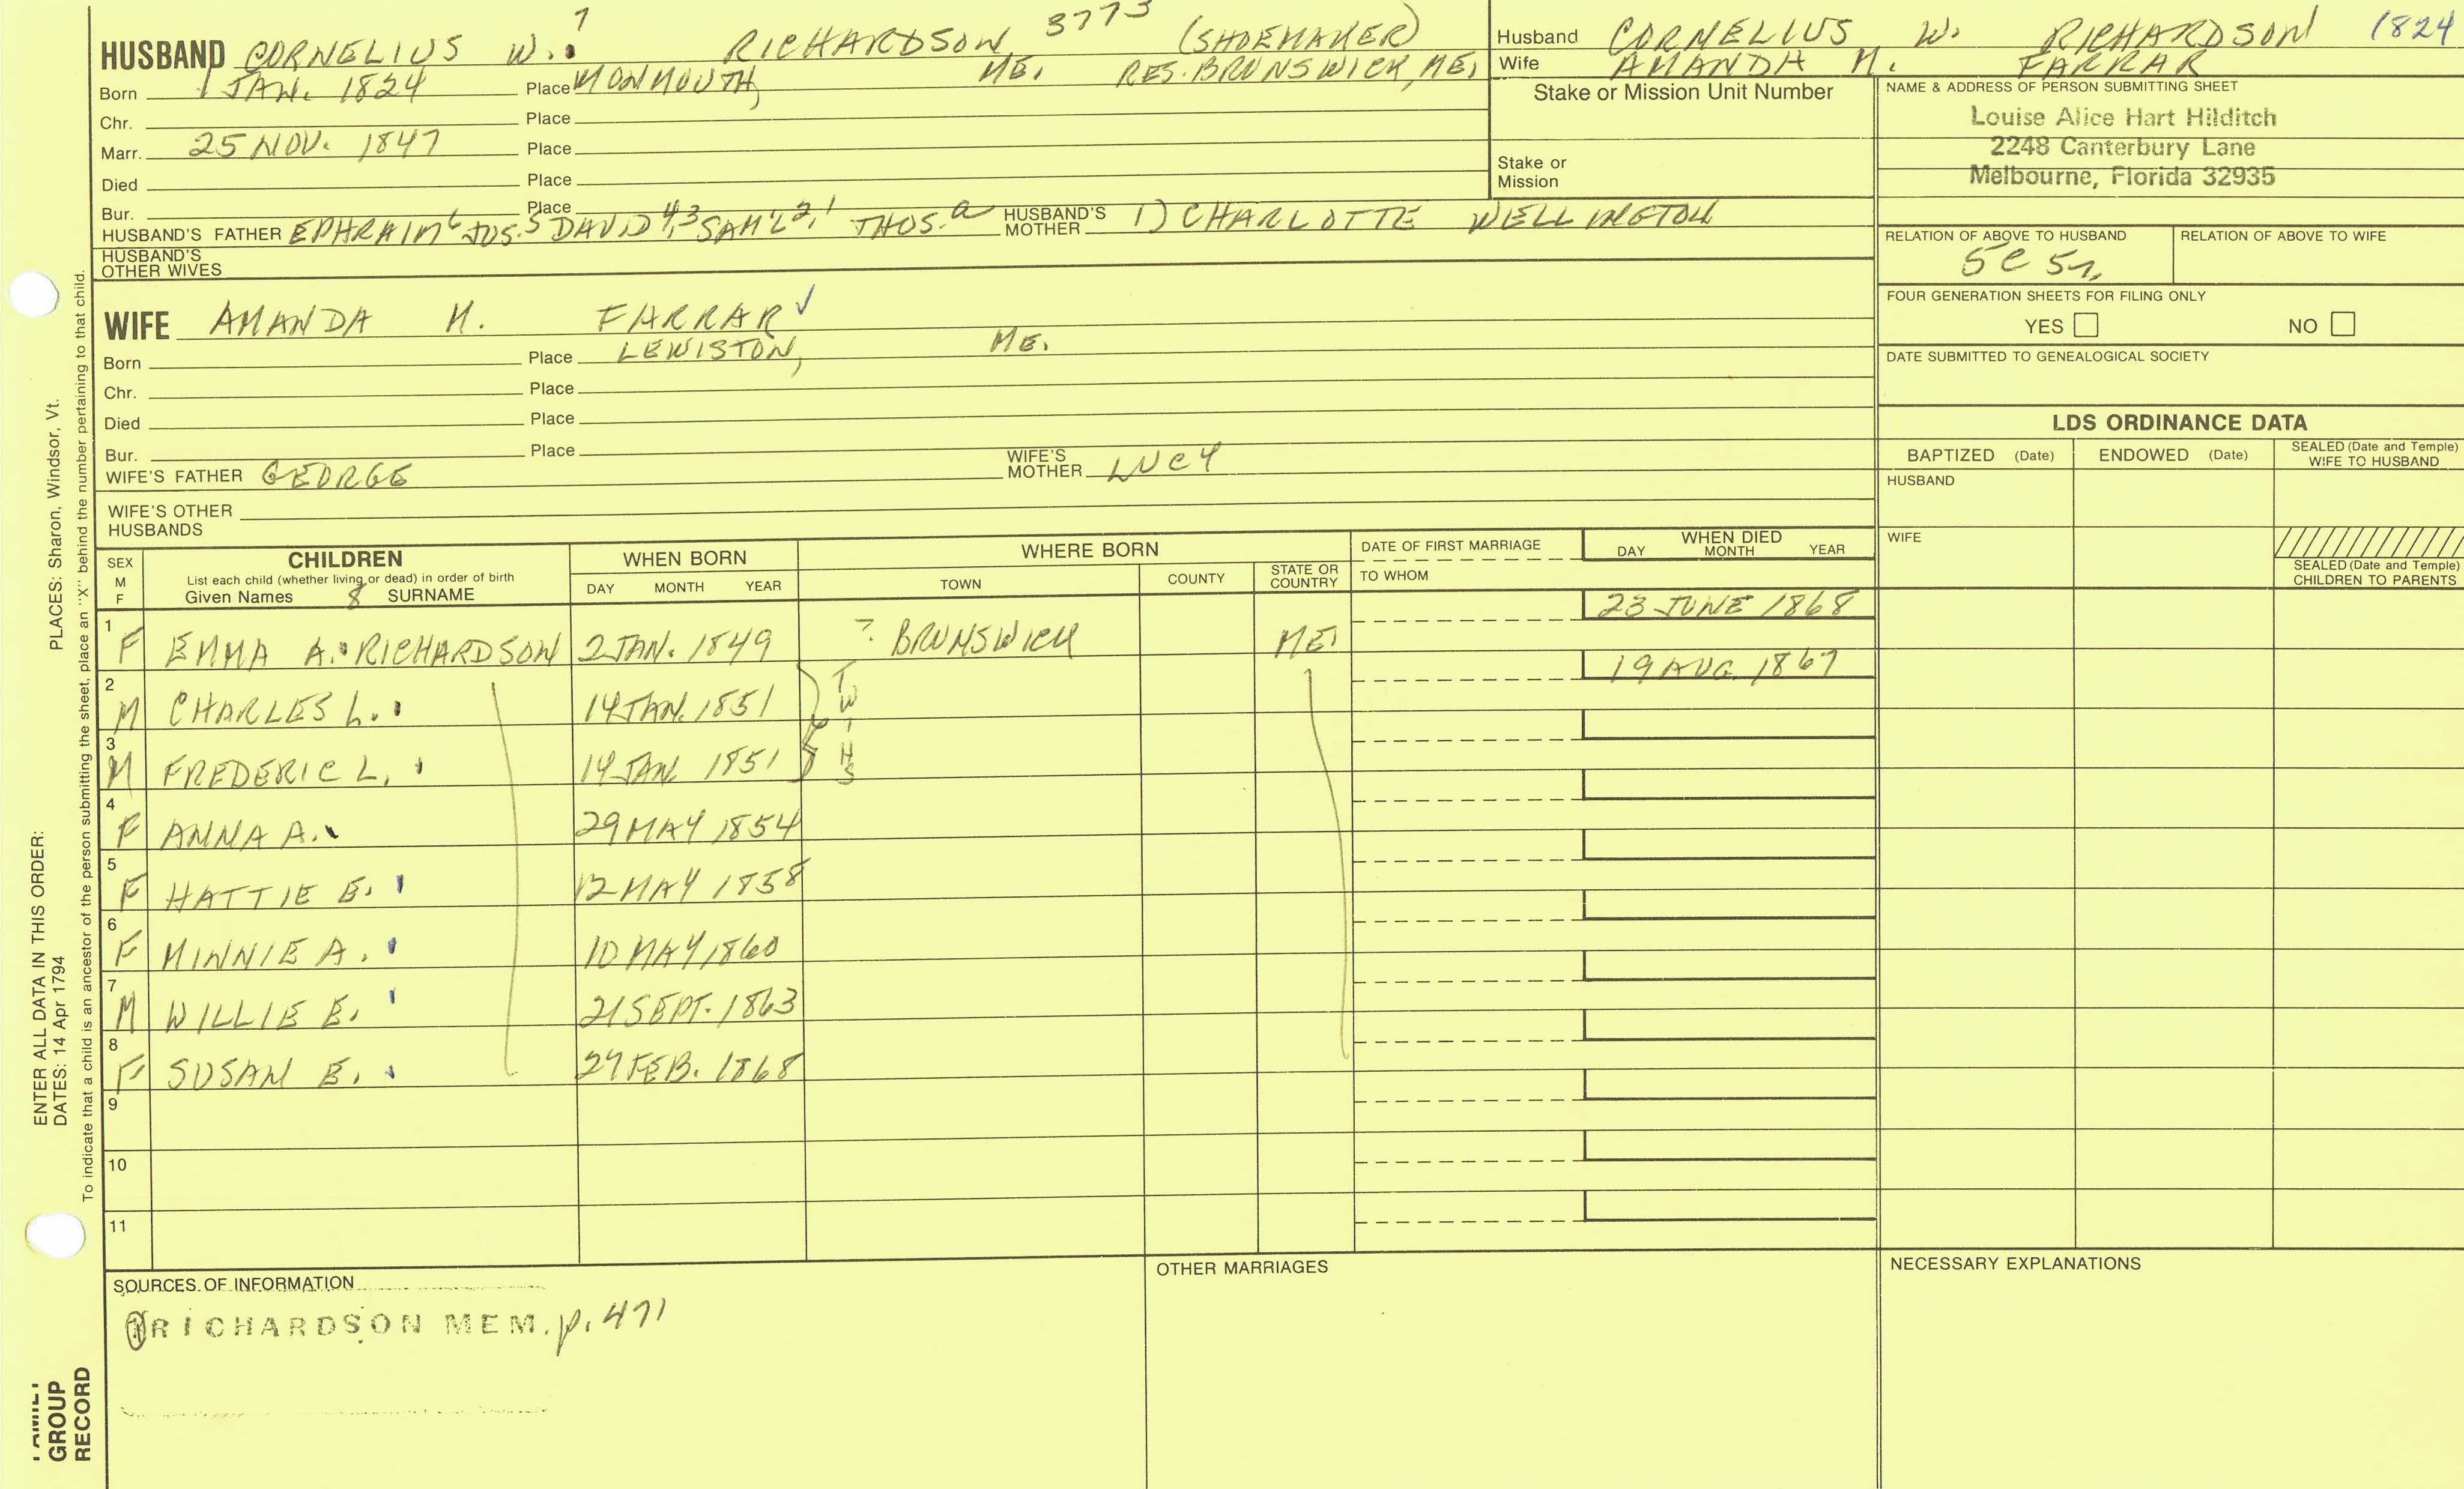 HUSBAND CORNELIUS W. 7 RICHARDSON 3773 (SHOEMAKER)
Born 1 JAN. 1824 Place MONMOUTH, ME. RES. BRUNSWICK, ME.
Chr. Place
Marr. 25 NOV. 1847 Place
Died Place
Bur. Place
HUSBAND'S FATHER EPHRAIM6 JOS.5 DAVID4,3 SAM'L2,1 THOS.a HUSBAND'S MOTHER 1) CHARLOTTE WELLINGTON
HUSBAND'S OTHER WIVES
Husband CORNELIUS W. RICHARDSON 1824
Wife AMANDA M. FARRAR
Stake or Mission Unit Number
Stake or Mission
NAME & ADDRESS OF PERSON SUBMITTING SHEET
Louise Alice Hart Hilditch
2248 Canterbury Lane
Melbourne, Florida 32935
RELATION OF ABOVE TO HUSBAND RELATION OF ABOVE TO WIFE
5C 5r,
FOUR GENERATION SHEETS FOR FILING ONLY
YES NO
DATE SUBMITTED TO GENEALOGICAL SOCIETY
WIFE AMANDA M. FARRAR ✓
Born Place LEWISTON, ME.
Chr. Place
Died Place
Bur. Place
WIFE'S FATHER GEORGE WIFE'S MOTHER LUCY
WIFE'S OTHER HUSBANDS
LDS ORDINANCE DATA
BAPTIZED (Date) ENDOWED (Date) SEALED (Date and Temple) WIFE TO HUSBAND
HUSBAND
WIFE
SEALED (Date and Temple) CHILDREN TO PARENTS
SEX M F CHILDREN WHEN BORN WHERE BORN DATE OF FIRST MARRIAGE WHEN DIED
List each child (whether living or dead) in order of birth
Given Names 8 SURNAME DAY MONTH YEAR TOWN COUNTY STATE OR COUNTRY TO WHOM DAY MONTH YEAR
1 F EMMA A. RICHARDSON 2 JAN. 1849 ? BRUNSWICK ME. 23 JUNE 1868
2 M CHARLES L. 14 JAN. 1851 TWINS 19 AUG. 1867
3 M FREDERIC L. 14 JAN 1851
4 F ANNA A. 29 MAY 1854
5 F HATTIE E. 12 MAY 1858
6 F MINNIE A. 10 MAY 1860
7 M WILLIE E. 21 SEPT. 1863
8 F SUSAN E. 27 FEB. 1868
9
10
11
SOURCES OF INFORMATION
RICHARDSON MEM. p. 471
OTHER MARRIAGES
NECESSARY EXPLANATIONS
ENTER ALL DATA IN THIS ORDER:
DATES: 14 Apr 1794
PLACES: Sharon, Windsor, Vt.
To indicate that a child is an ancestor of the person submitting the sheet, place an "X" behind the number pertaining to that child.
FAMILY
GROUP
RECORD